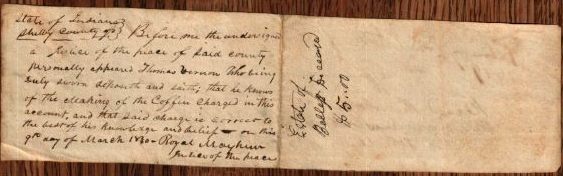 State of Indiana }
Shelby County ss } Before me the undersigned
a Justice of the peace of said county
personally appeared Thomas Vernon who being
duly sworn deposeth and saith, that he knows
of the making of the Coffin Charged in this
account, and that said charge is correct to
the best of his knowledge and belief – on this
9th day of March 1830 – Royal Mayhew
Justice of the peace
Estate of
deceased
$5.00